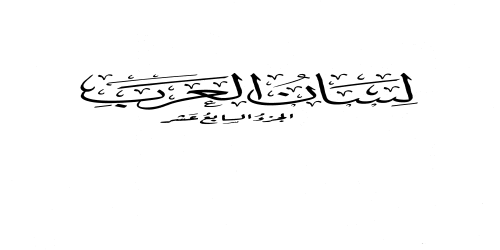 لسان العرب
الجزء السابع عشر